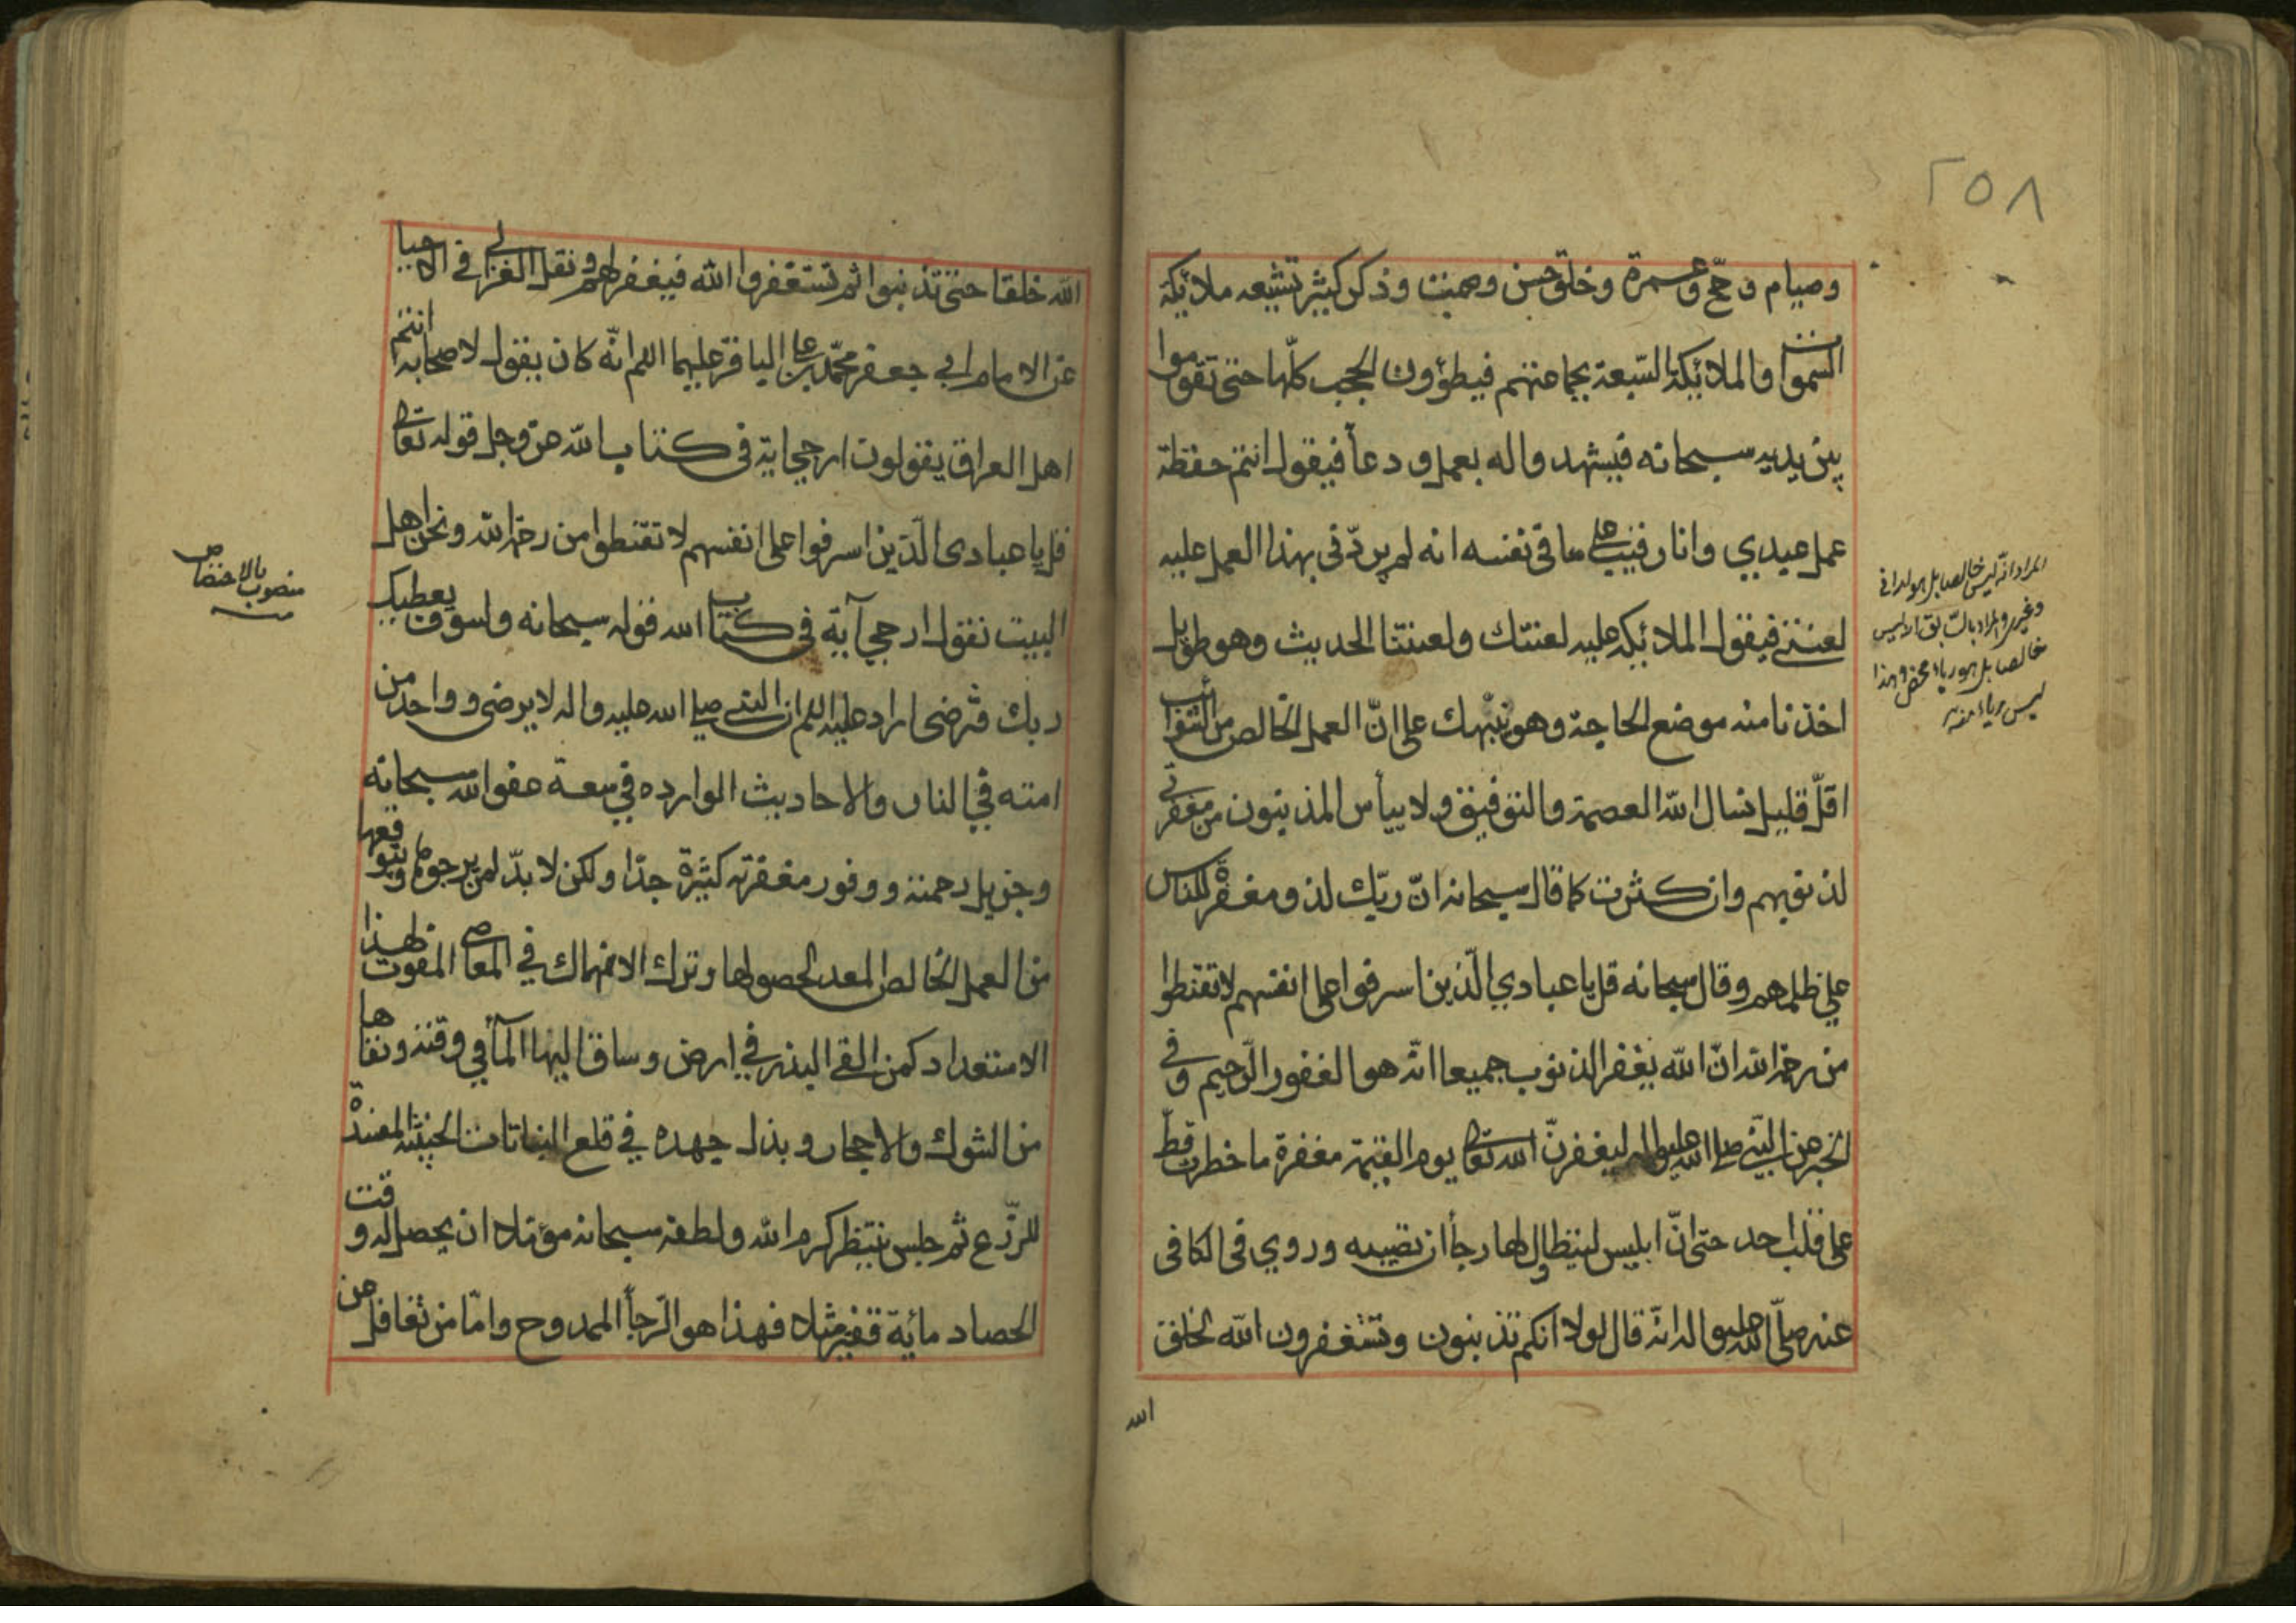 ٢٥٨
وصيام وحجّ وعمرة وخلق حسن وصمت وذكر كثير تشيعه ملائكة
السموات والملائكة السّبعة بجماعتهم فيطؤون الحجب كلّها حتى تقوموا
بين يديه سبحانه فيشهدوا له بعمل ودعاً فيقول انتم حفظة
عمل عبدي وانا رقيب على ما فى نفسه انه لم يردّنى بهذا العمل عليه
لعنتى فيقول الملائكه عليه لعنتك ولعنتنا الحديث وهو طويل
اخذنا منه موضع الحاجة وهو ينبّهك على انّ العمل الخالص من الشوائب
اقلّ قليل نسال الله العصمة والتوفيق ولا ييأس المذنبون من مغفرتى
لذنوبهم وان كثرت كما قال سبحانه انّ ربّك لذو مغفرة للناس
على ظلمهم وقال سبحانه قل يا عبادي الّذين اسرفوا على انفسهم لا تقنطوا
من رحمة الله انّ الله يغفر الذنوب جميعا انّه هو الغفور الرّحيم وفى
الخبر عن النبّى صلى الله عليه واله ليغفرنّ الله تعالى يوم القيمة مغفرة ما خطرت قطّ
على قلب احد حتى انّ ابليس ليتطاول لها رجأ ان تصيبه وروي فى الكافى
عنه صلّى الله عليه واله انّه قال لولا انكم تذنبون وتستغفرون الله لخلق
الله
المراد انّه ليس خالصا بل هو له انى
وغيرى والمراد بالسّابق انه ليس
خالصا بل هو رياء محض وهذا
ليس رياء منه
الله خلقا حتى تذنبوا ثم تستغفروا الله فيغفر لهم ونقل الغزالى فى الاحيا
عن الامام ابي جعفر محمّد بن على الباقر عليهما اللم انّه كان يقول لاصحابه انتم
اهل العراق يقولون ارجى اية فى كتاب الله عز وجل قوله تعالى
قل يا عبادى الّذين اسرفوا على انفسهم لا تقنطوا من رحمة الله ونحن اهل
البيت نقول ارجى آية فى كتاب الله قوله سبحانه ولسوف يعطيك
ربك فترضى اراد عليه اللم ان النبى صلى الله عليه واله لا يرضى وواحد من
امته فى النار والاحاديث الوارده فى سعة عفو الله سبحانه
وجزيل رحمته ووفور مغفرته كثيرة جدّا ولكن لا بدّ لمن يرجوها ويتوقعها
من العمل الخالص المعد لحصولها وترك الانهماك في المعاصى المفوت لهذا
الاستعداد كمن القى البذر في ارض وساق اليها المآء في وقته ونقاها
من الشوك والاحجار وبذل جهده في قلع النباتات الخبيثة المفسدة
للزّرع ثم جلس ينتظر كرم الله ولطفه سبحانه مؤمّلا ان يحصل له وقت
الحصاد مائة قفيز مثلا فهذا هو الرّجأ الممدوح وامّا من تغافل عن
منصوب بالاختصاص
منه